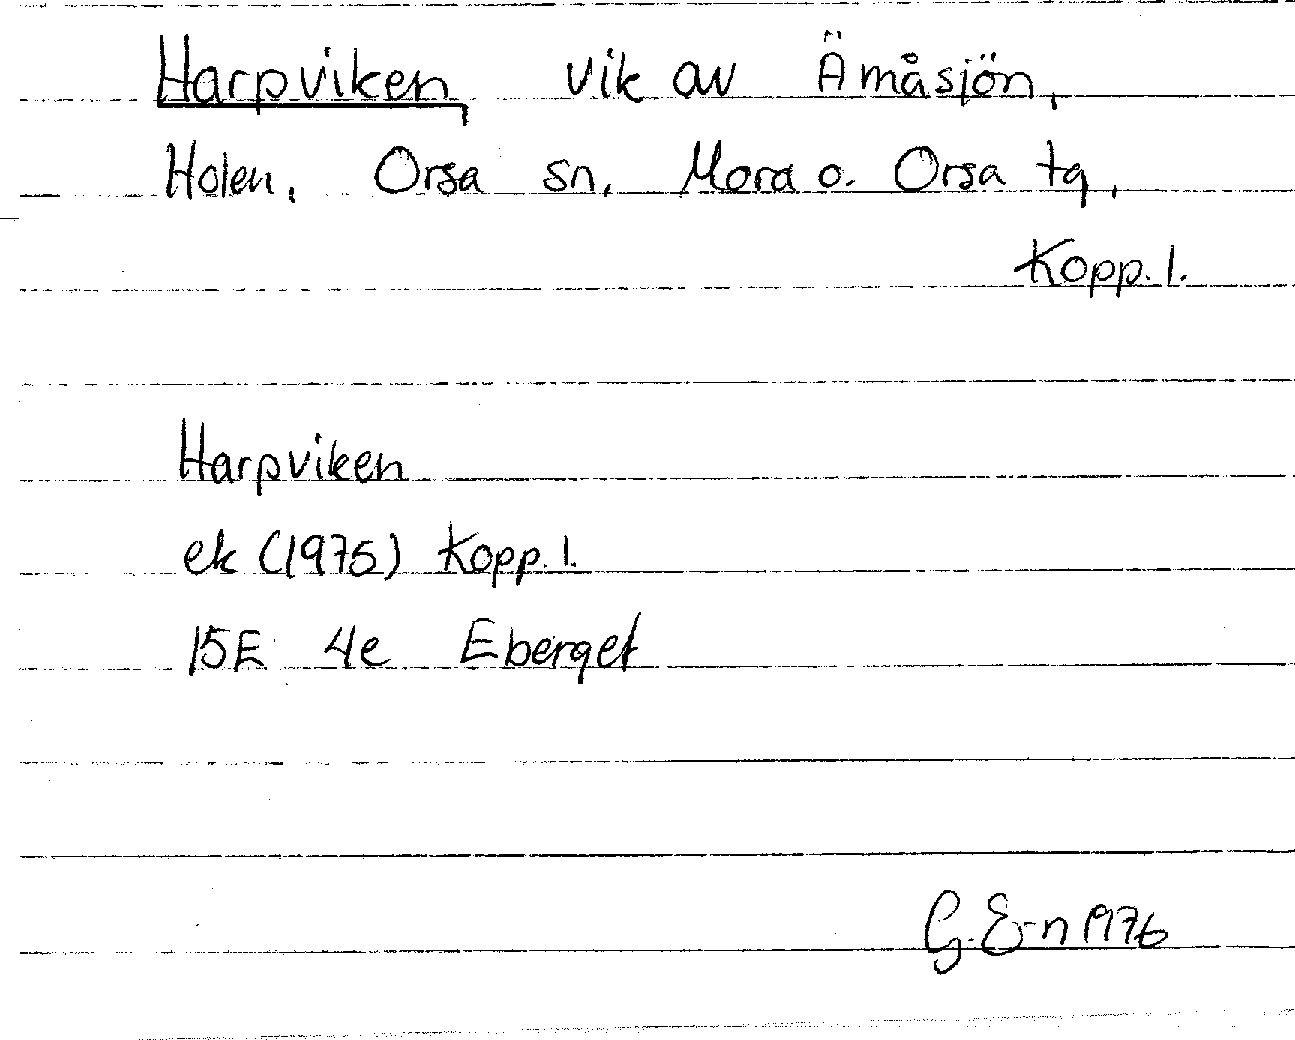 Harpviken, vik av Ämåsjön,
Holen, Orsa sn, Mora o. Orsa tg,
Kopp. l.
Harpviken
ek (1975) Kopp. l.
15E 4e Eberget
G. E-n 1976